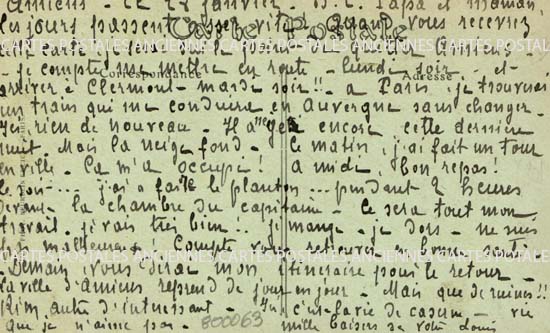 Amiens - Le 28 janvier - B. C. Papa et maman,
les jours passent assez vite. Quand vous recevrez
Carte Postale
je compte me mettre en route - lundi soir - et
Correspondance
Adresse
arriver à Clermont - mardi soir !! - à Paris, je trouverai
un train qui me conduira en Auvergne sans changer.
Ici, rien de nouveau - Il a gelé encore cette dernière
nuit. Mais la neige fond - Ce matin, j'ai fait un tour
en ville. Ça m'a occupé ! à midi, bon repas !
Ce soir ... j'ai fait le planton ... pendant 2 heures
devant la chambre du capitaine - Ce sera tout mon
travail. je vais très bien !! je mange - je dors - ne suis
pas malheureux - Compte vous retrouver en bonne santé
- Demain, vous dirai mon itinéraire pour le retour -
La ville d'Amiens reprend de jour en jour - Mais que de ruines !!
Rien autre d'intéressant -
que je n'aime pas - 800063 mille baisers de votre
CARTES POSTALES ANCIENNES